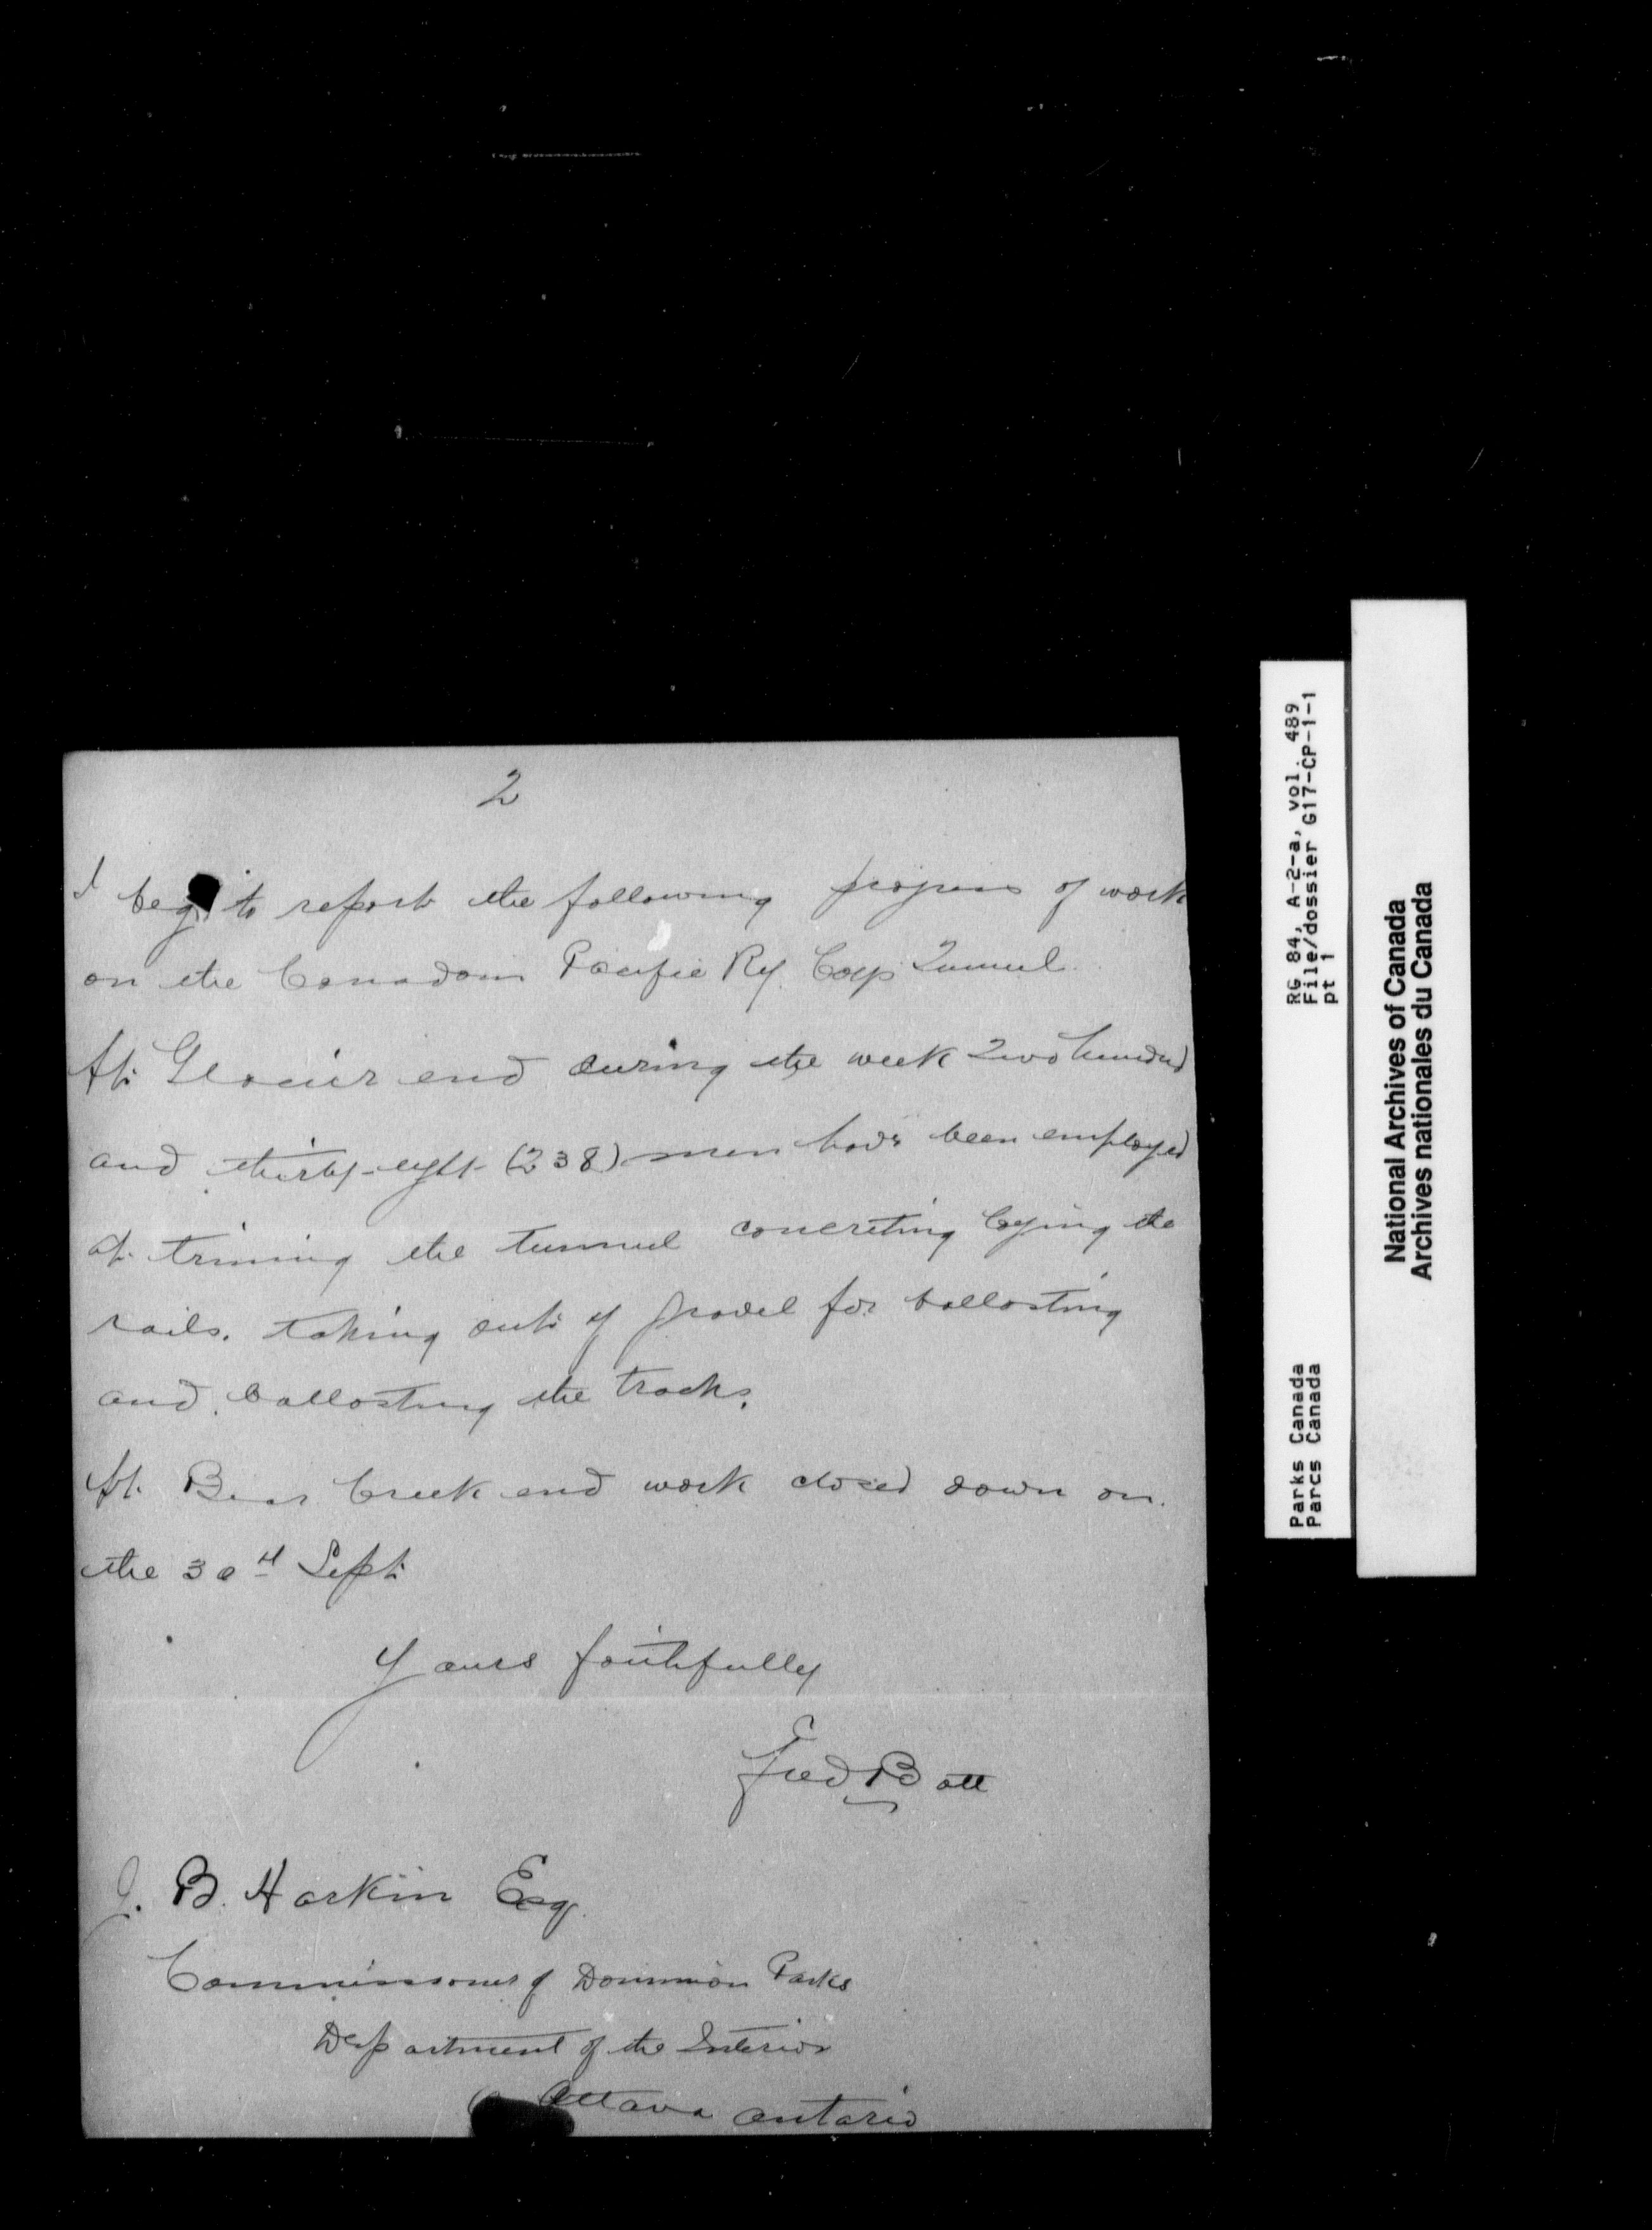 2
I beg to report the following progress of work
on the Canadain Pacific Ry. Coys Tunnel
At Glacier end during the week Two hundred
and thirty-eight (238) men have been employed
at triming the tunnel concreting laying the
rails. taking out of gravel for ballasting
and ballasting the tracks.
At Bear Creek end work closed down on
the 30th Sept
Yours faithfully
Fred Batt
J. B. Harkin Esq.
Commissioner of Dominion Parks
Department of the Interior
Ottawa Ontario
RG 84, A-2-a, vol. 489
File/dossier G17-CP-1-1
pt 1
Parks Canada
Parcs Canada
National Archives of Canada
Archives nationales du Canada